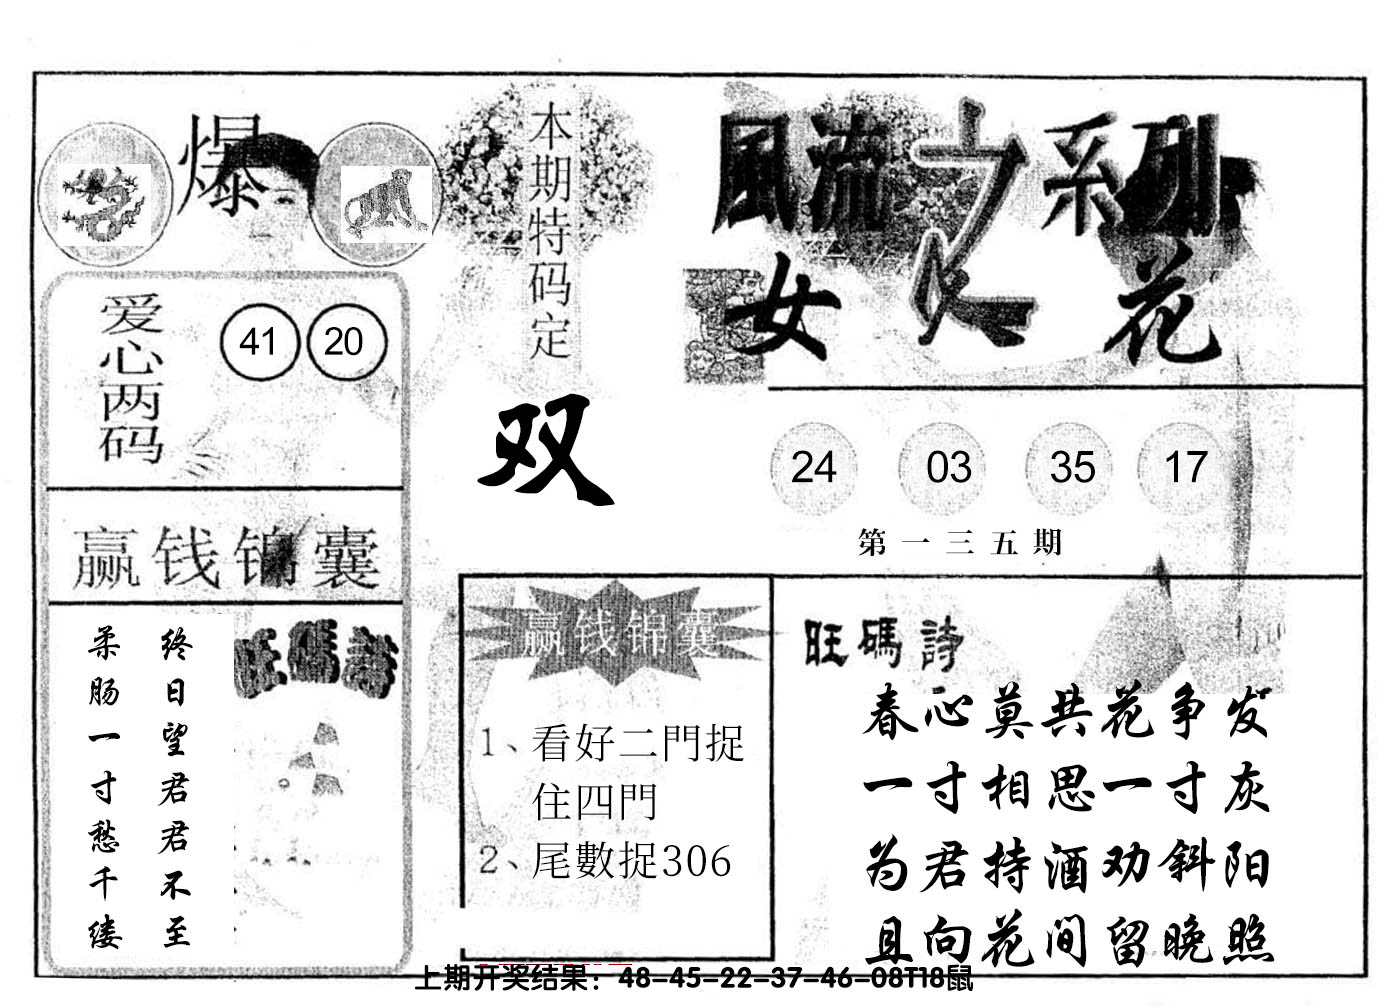 爆
本期特码定
双
風流之系列
女人花
爱心两码
41 20
24 03 35 17
第一三五期
赢钱锦囊
终日望君君不至
柔肠一寸愁千缕
旺碼詩
赢钱锦囊
1、看好二門捉
住四門
2、尾數捉306
旺碼詩
春心莫共花争发
一寸相思一寸灰
为君持酒劝斜阳
且向花间留晚照
上期开奖结果：48-45-22-37-46-08T18鼠